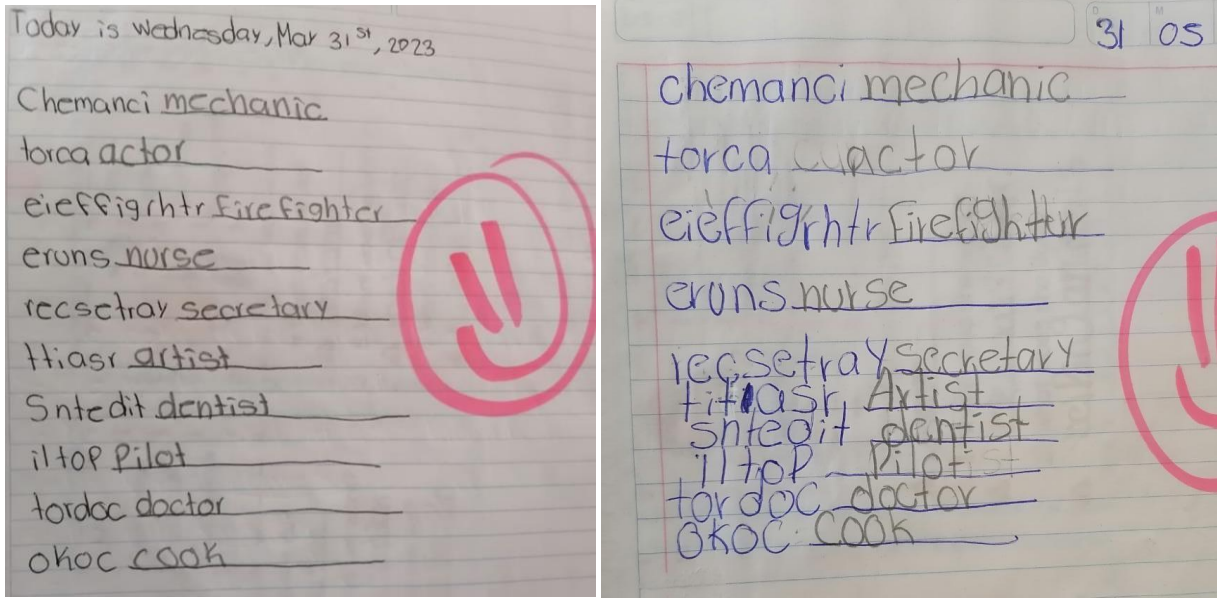 Today is wednesday, Mar 31st, 2023
Chemanci mechanic
torca actor
eieffigrhtr firefighter
eruns nurse
recsetray secretary
ttiasr artist
Sntedit dentist
iltop Pilot
tordoc doctor
okoc cook
D M
31 05
chemanci mechanic
torca actor
eieffigrhtr firefighter
eruns nurse
recsetray secretary
titiasr Artist
sntedit dentist
iltop Pilot
tordoc doctor
okoc cook